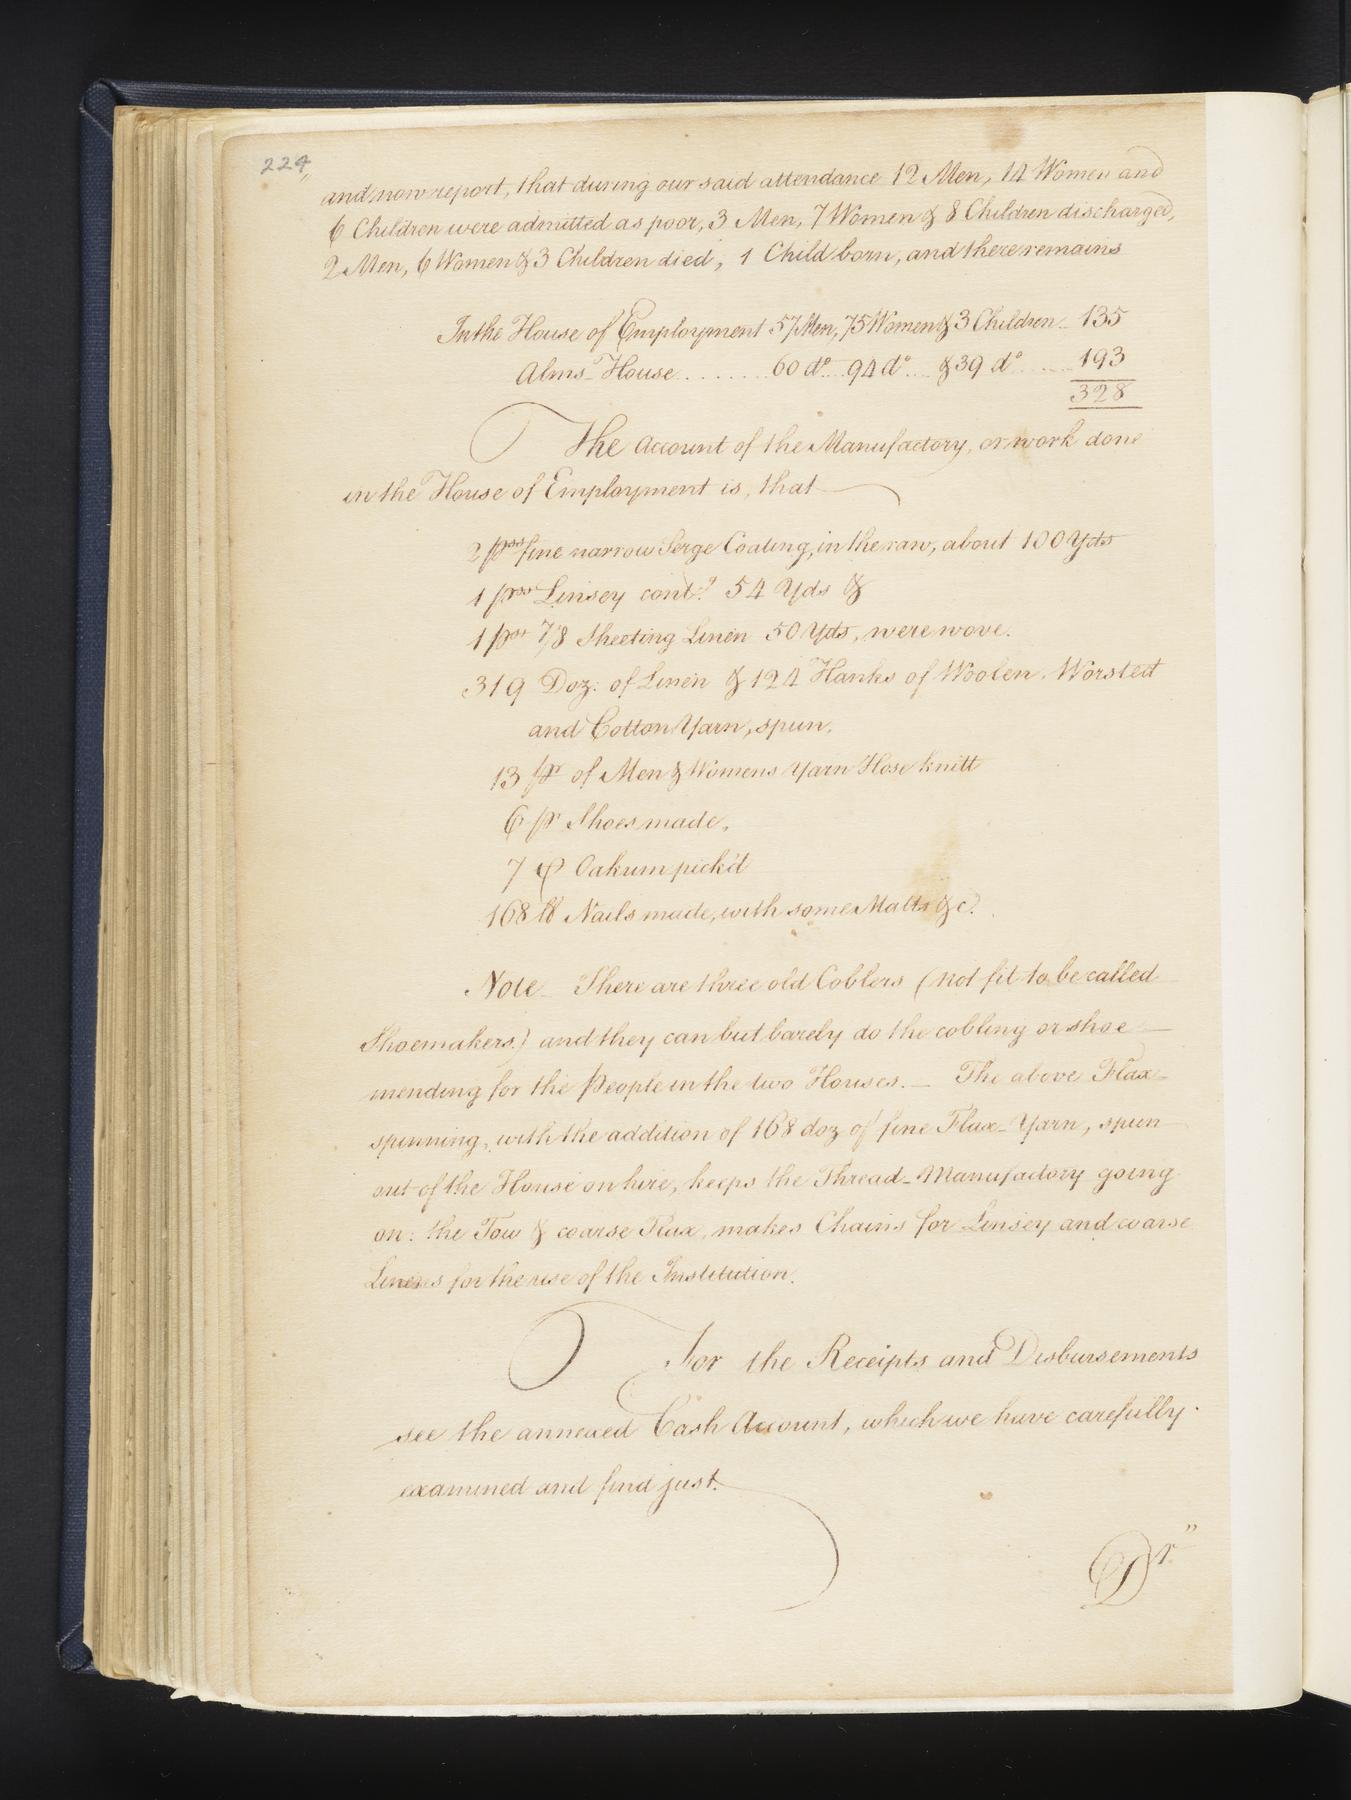 224
and now report, that during our said attendance 12 Men, 14 Women and
6 Children were admitted as poor, 3 Men, 7 Women & 8 Children discharged,
2 Men, 6 Women & 3 Children died, 1 Child born, and there remains
In the House of Employment 57 Men, 75 Women & 3 Children 135
Alms-House ........ 60 do .. 94 do ... & 39 do ..... 193
328
The Account of the Manufactory, or work done
in the House of Employment is, that
2 pces fine narrow Serge Coating, in the raw, about 100 Yds
1 pce Linsey contg 54 Yds &
1 pce 7/8 Sheeting Linen 50 Yds, were wove.
319 Doz: of Linen & 124 Hanks of Woolen, Worsted
and Cotton Yarn, spun,
13 pr of Men & Womens Yarn Hose knitt
6 pr Shoes made,
7 Oakum pick'd
168 lb Nails made, with some Matts &c.
Note There are three old Coblers (not fit to be called
Shoemakers) and they can but barely do the cobling or shoe
mending for the People in the two Houses. — The above Flax
spinning, with the addition of 168 doz of fine Flax-Yarn, spun
out of the House on hire, keeps the Thread-Manufactory going
on: the Tow & coarse Flax, makes Chains for Linsey and coarse
Linens for the use of the Institution.
For the Receipts and Disbursements
see the annexed Cash Account, which we have carefully
examined and find just.
Dr"